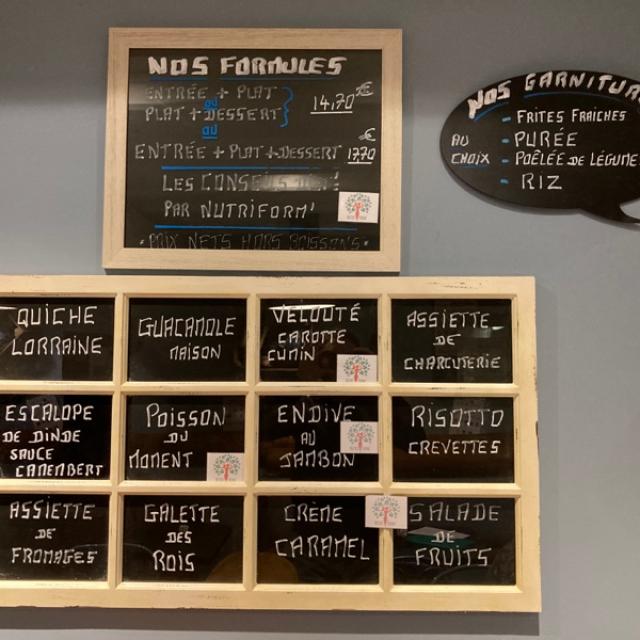 NOS FORMULES
ENTRÉE + PLAT
ou
PLAT + DESSERT
14,70€
ou
ENTRÉE + PLAT + DESSERT 17,70€
LES CONSEILS
PAR NUTRIFORM'
PRIX NETS HORS BOISSONS
NOS GARNITU
AU
CHOIX
- FRITES FRAICHES
- PURÉE
- POÊLÉE DE LÉGUME
- RIZ
QUICHE
LORRAINE
GUACAMOLE
MAISON
VELOUTÉ
CAROTTE
CUMIN
ASSIETTE
DE
CHARCUTERIE
ESCALOPE
DE DINDE
SAUCE
CAMEMBERT
POISSON
DU
MOMENT
ENDIVE
AU
JAMBON
RISOTTO
CREVETTES
ASSIETTE
DE
FROMAGES
GALETTE
DES
ROIS
CRÈME
CARAMEL
SALADE
DE
FRUITS